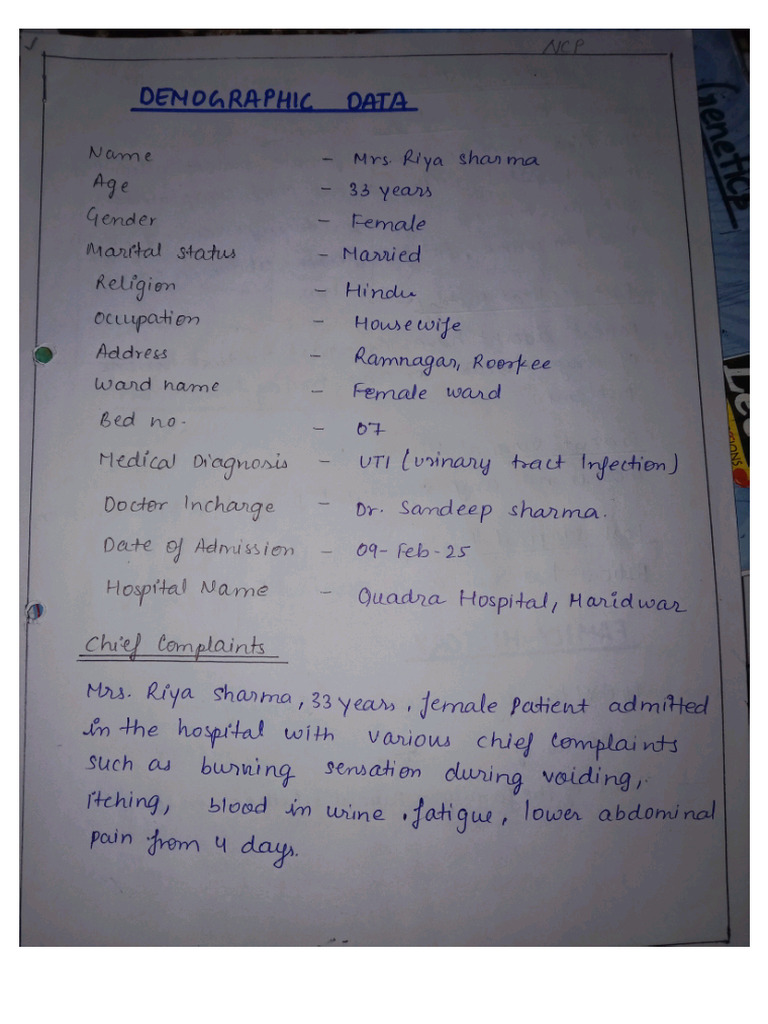 NCP
DEMOGRAPHIC DATA
Name - Mrs. Riya sharma
Age - 33 years
Gender - Female
Marital status - Married
Religion - Hindu
Occupation - Housewife
Address - Ramnagar, Roorkee
Ward name - Female ward
Bed no. - 07
Medical Diagnosis - UTI (urinary tract Infection)
Doctor Incharge - Dr. Sandeep sharma.
Date of Admission - 09-Feb-25
Hospital Name - Quadra Hospital, Haridwar
Chief Complaints
Mrs. Riya sharma, 33 years, female patient admitted
in the hospital with various chief complaints
such as burning sensation during voiding,
itching, blood in urine, fatigue, lower abdominal
pain from 4 days.
Genetice